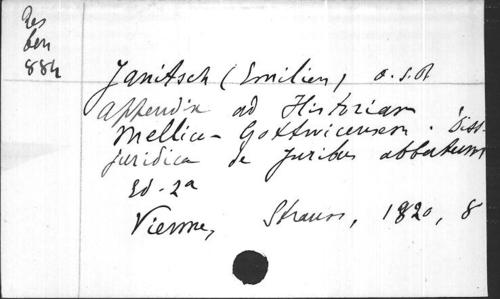 Res
ben
884
Janitsch (Emilien) o.s.B
appendix ad Historiam
Mellico-Gottwicensem. Diss.
juridica de juribus abbatum
Ed. 2a
Vienne, Strauss, 1820, 8